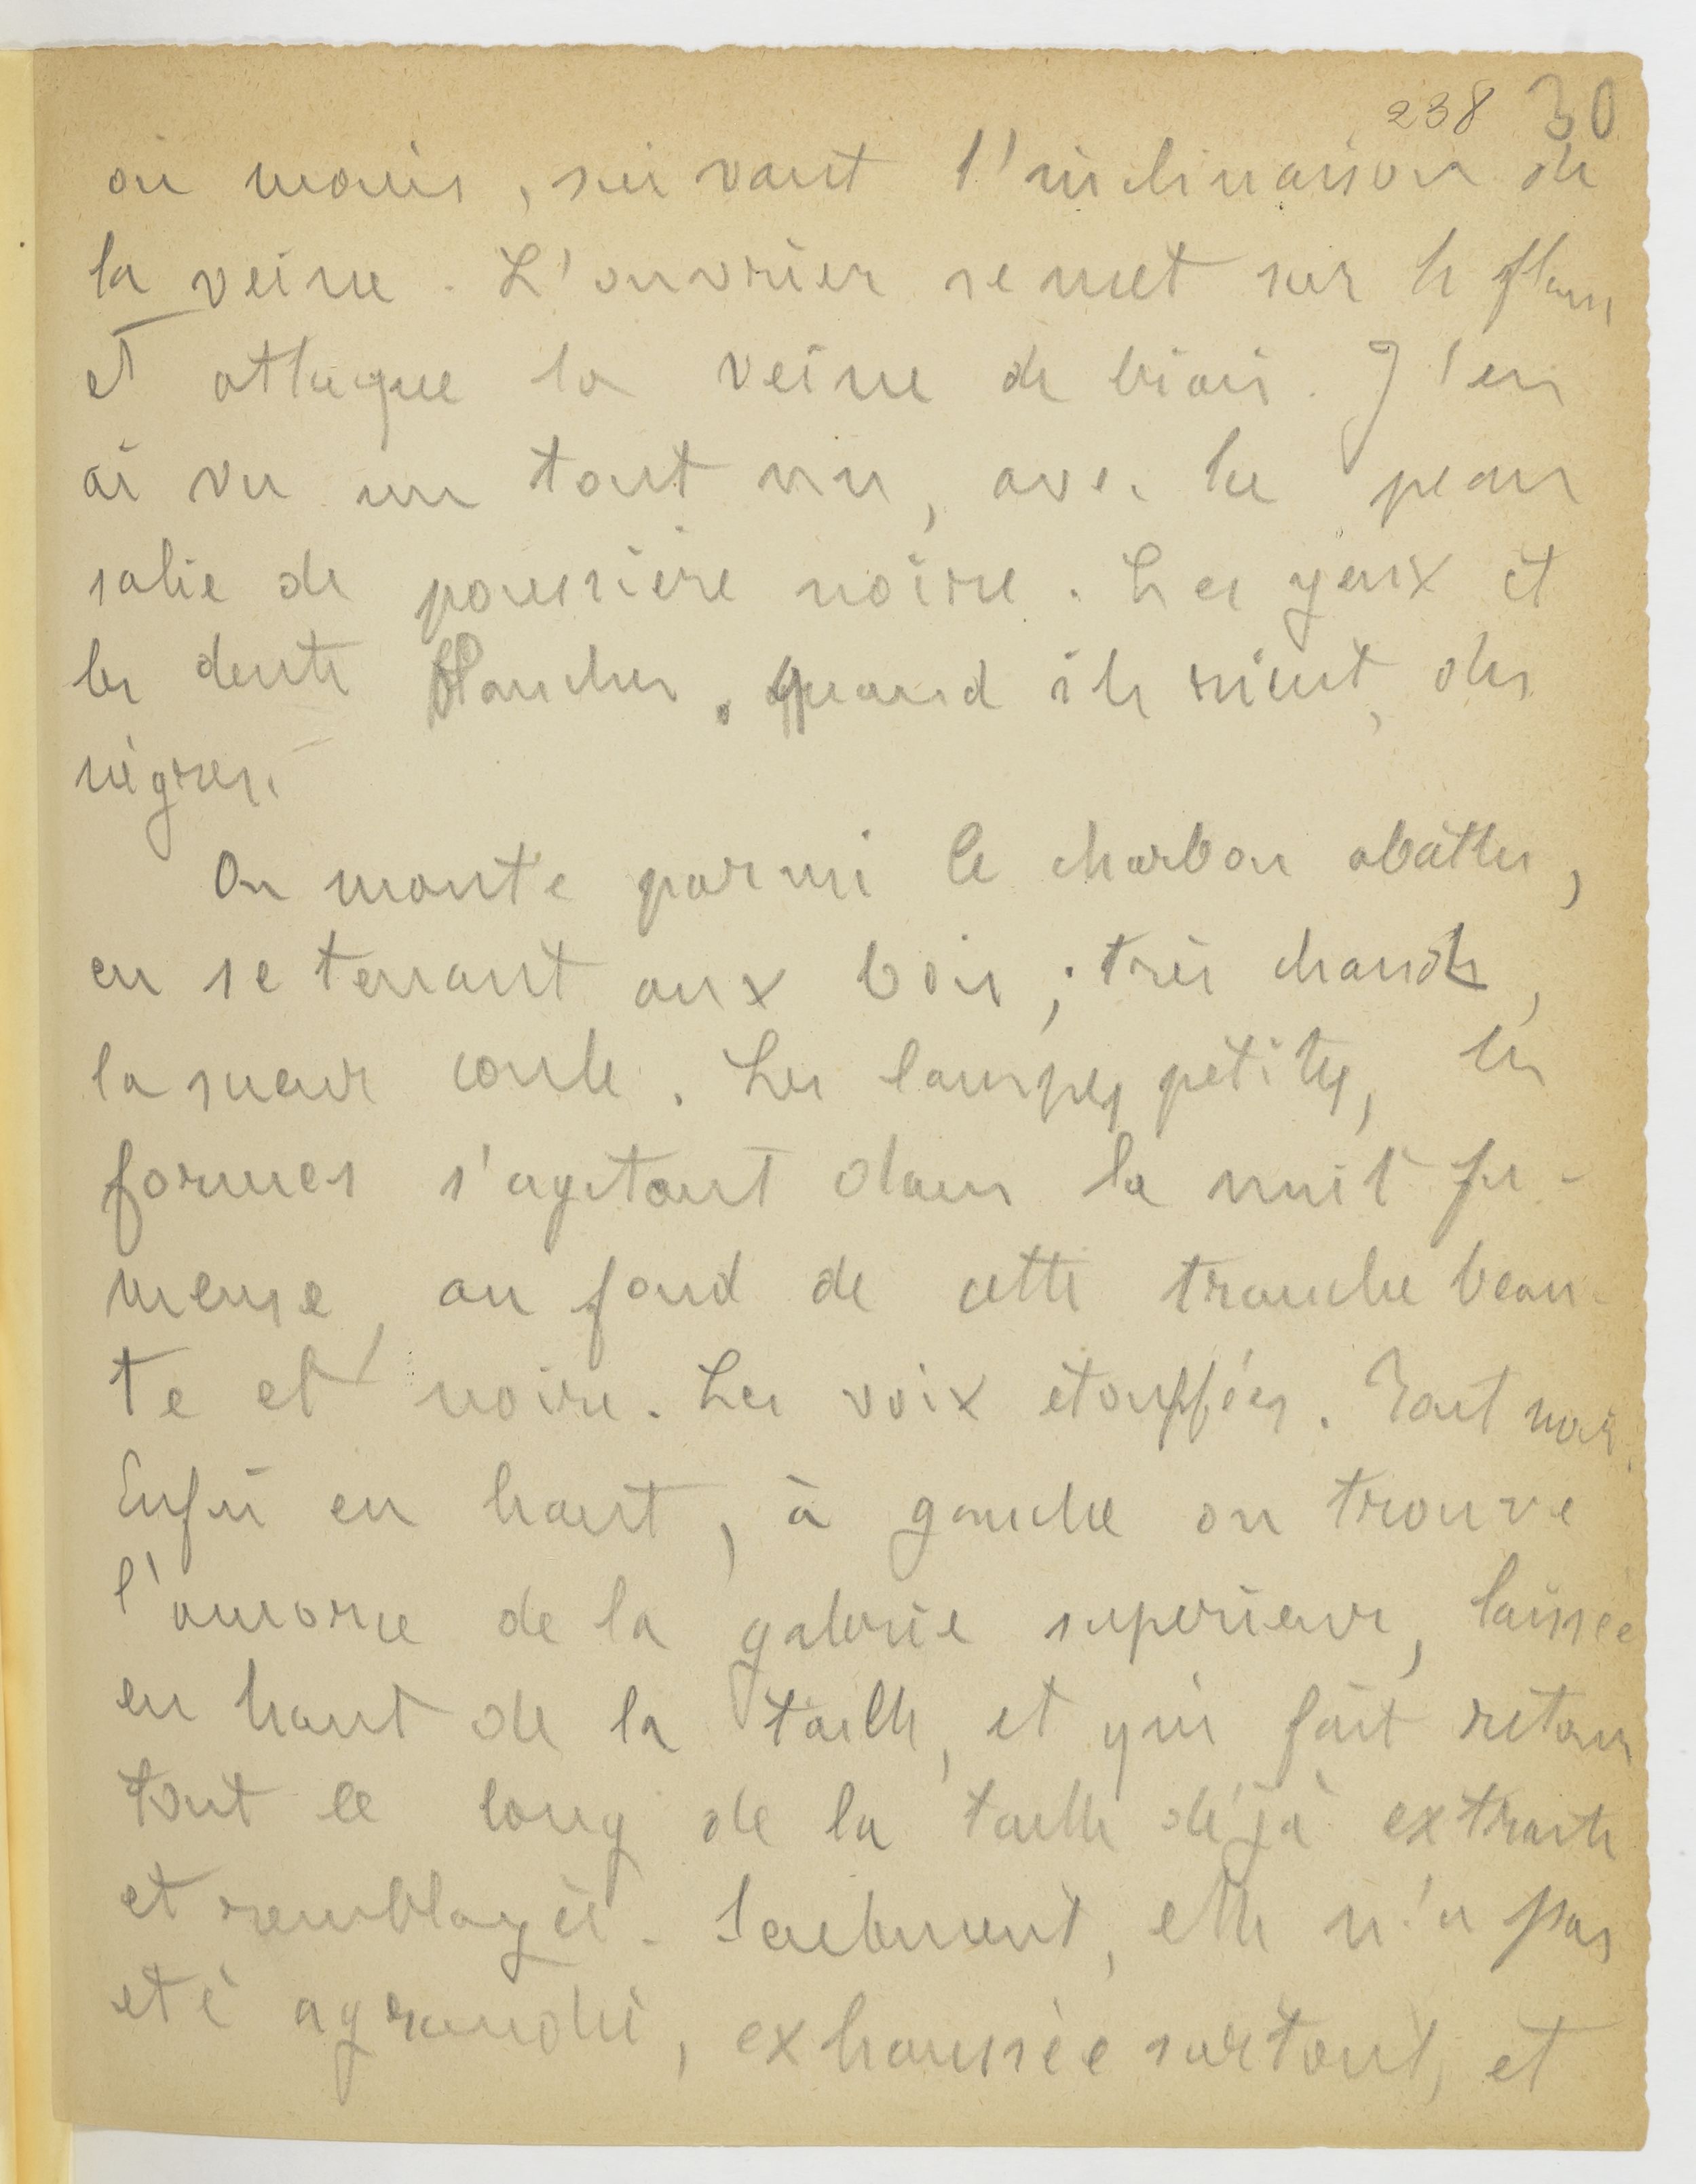 238 30
ou moins, suivant l'inclinaison de
la veine. L'ouvrier se met sur le flanc
et attaque la veine de biais. J'en
ai vu un tout nu, avec la peau
salie de poussière noire. Les yeux et
les dents blanches. Quand ils rient, des
nègres.
On monte parmi le charbon abattu,
en se tenant aux bois ; très chaud,
la sueur coule. Les lampes petites, les
formes s'agitant dans la nuit fu-
meuse, au fond de cette tranche béan-
te et noire. Les voix étouffées. Tout noir.
Enfin en haut, à gauche on trouve
l'amorce de la galerie supérieure, laissée
en haut de la taille, et qui fait retour
tout le long de la taille déjà extraite
et remblayée. Seulement, elle n'a pas
été agrandie, exhaussée surtout, et